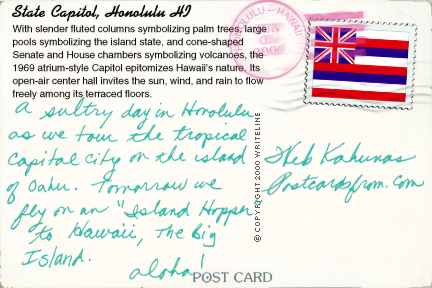 State Capitol, Honolulu HI
With slender fluted columns symbolizing palm trees, large
pools symbolizing the island state, and cone-shaped
Senate and House chambers symbolizing volcanoes, the
1969 atrium-style Capitol epitomizes Hawaii's nature. Its
open-air center hall invites the sun, wind, and rain to flow
freely among its terraced floors.
A sultry day in Honolulu
as we tour the tropical
capital city on the island
of Oahu. Tomorrow we
fly on an "Island Hopper"
to Hawaii, The Big
Island.
aloha!
POST CARD
© COPYRIGHT 2000 WRITELINE
HONOLULU - HAWAII
Web Kahunas
Postcardsfrom.com